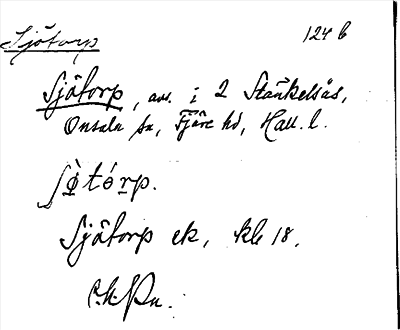 Sjötorp
124 b
Sjötorp, avs. i 2 Stankelsås,
Onsala sn, Fjäre hd, Hall. l.
ʃø̀tórp.
Sjötorp ek, kbl 18.
C.h. Pn.